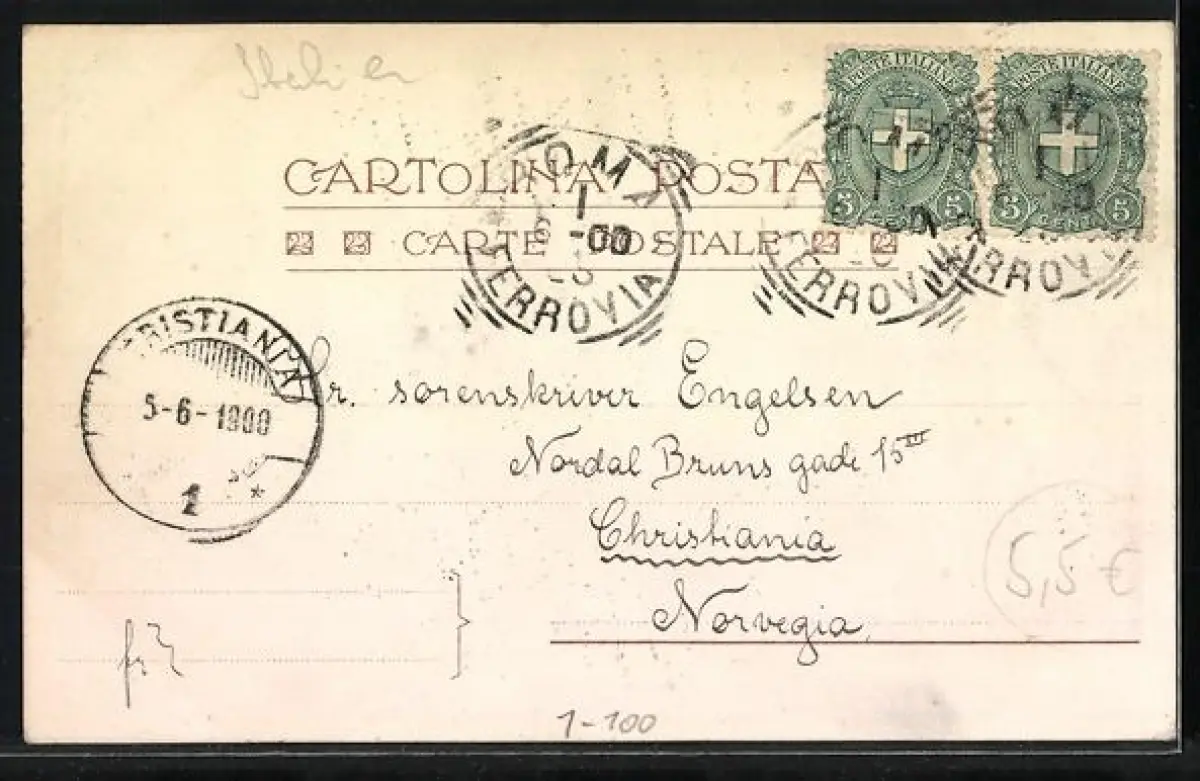 Italien
POSTE ITALIANE
5 CENT 5
POSTE ITALIANE
5 CENT 5
CARTOLINA POSTA
CARTE POSTALE
ROMA
1
6 -00
FERROVIA
FERROVIA
FERROVIA
CHRISTIANIA
5-6-1900
1
*
Hr. sorenskriver Engelsen
Nordal Bruns gade 15 III
Christiania
Norvegia
5,5 €
1-100